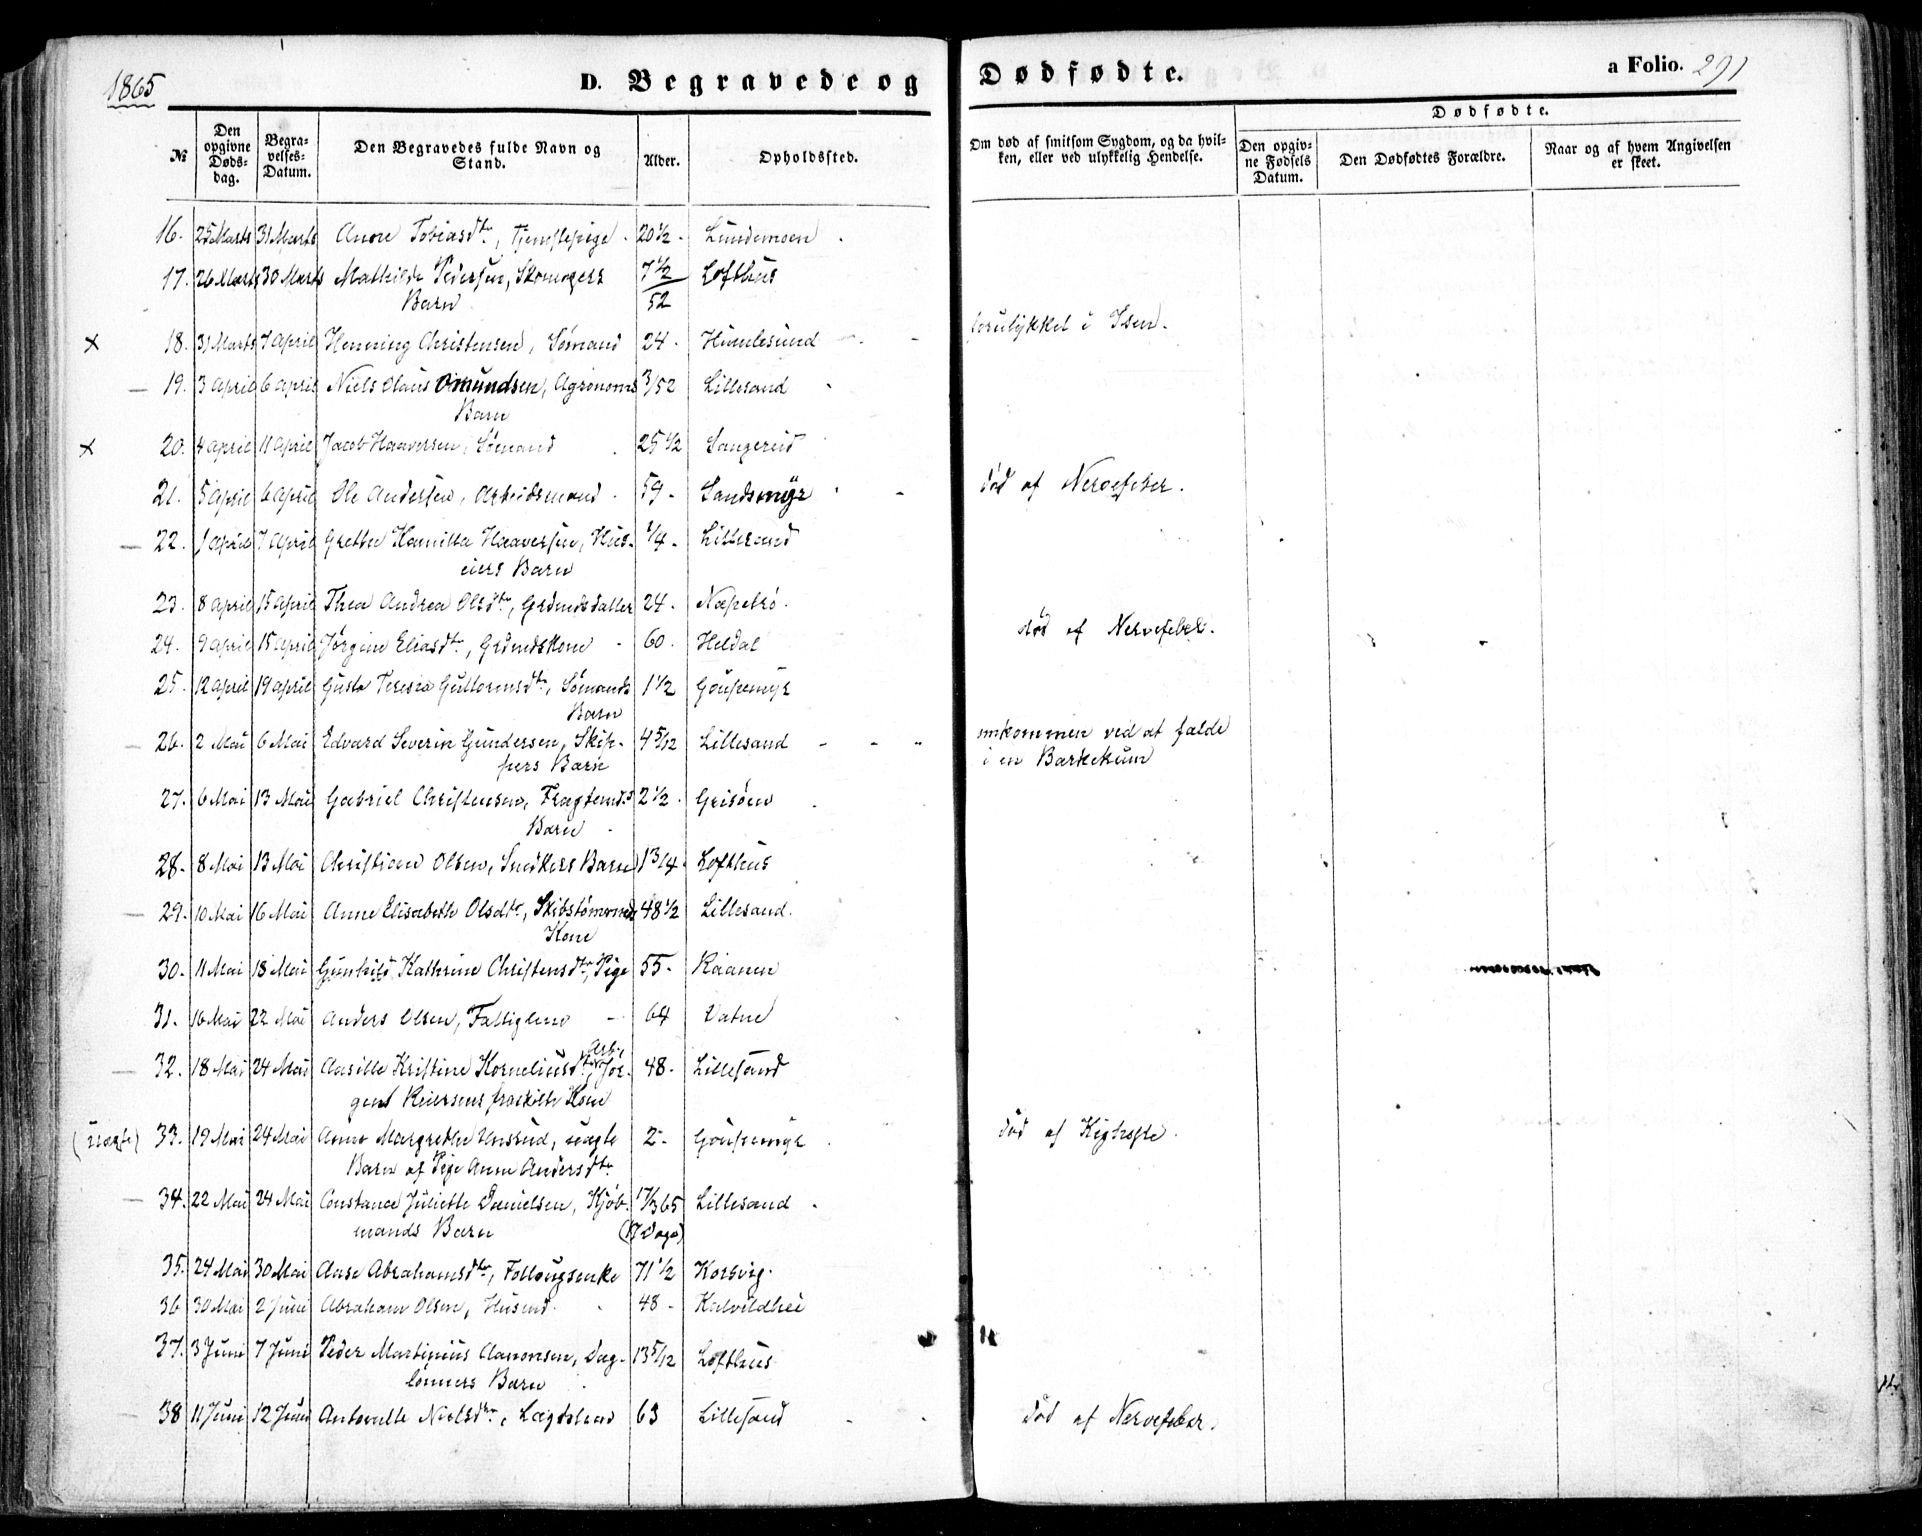 1865
D. Begravede og Dødfødte.
a Folio. 291
№
Den opgivne Døds-dag.
Begra-velses-Datum.
Den Begravedes fulde Navn og Stand.
Alder.
Opholdssted.
Om død af smitsom Sygdom, og da hvil-ken, eller ved ulykkelig Hendelse.
Dødfødte.
Den opgiv-ne Fødsels Datum.
Den Dødfødtes Forældre.
Naar og af hvem Angivelsen er skeet.
16. 25 Marts 31 Marts Anne Tobiasdtr, Tjenstepige 20 1/2 Lundemoen
17. 26 Marts 30 Marts Mathilde Pedersen, Skomagers 7 1/2 Lofthus
Barn 52
x 18. 31 Marts 7 April Henning Christensen, Sømand 24 Humlesund forulykket i Isen.
19. 3 April 6 April Niels Olaus Omundsen, Agronoms 3/52 Lillesand
Barn
x 20. 4 April 11 April Jacob Haaversen, Sømand 25 1/2 Sangereid
21. 5 April 6 April Ole Andersen, Arbeidsmand 59 Sandsmyr død af Nervefeber.
22. 1 April 7 April Grethe Hamilla Haaversen, Hus- 1/4 Lillesand
eiers Barn
23. 8 April 15 April Thea Andrea Olsdtr, Grdmdsdatter 24
24. 9 April 15 April Jørgine Eliasdtr, Grdmdskone 60 Heldal død af Nervefeber.
25. 12 April 19 April Gusta Teresia Guttormsdtr, Sømands 1 1/2 Goupemyr
Barn
26. 2 Mai 6 Mai Edvard Severin Gundersen, Skip- 4 5/12 Lillesand omkommen ved at falde
pers Barn i en Barkekum
27. 6 Mai 13 Mai Gabriel Christensen, Fragtemds 2 1/2 Grisøen
Barn
28. 8 Mai 13 Mai Christian Olsen, Snedkers Barn 1 3/4 Lofthus
29. 10 Mai 16 Mai Anne Elisabeth Olsdtr, Skibstømrmds 48 1/2 Lillesand.
Kone
30. 11 Mai 18 Mai Gunhild Kathrine Christensdtr, Pige 55 Kaanen
31. 16 Mai 22 Mai Anders Olsen, Fattiglem 64 Vatne
32. 18 Mai 24 Mai Aasille Kristine Korneliusdtr, Arb. Jør- 48 Lillesand
gen Reiersens fraskilte Kone
(uægte) 33. 19 Mai 24 Mai Anne Margrethe uægte 2 Goupemyr død af Kighoste.
Barn af Pige Anne Andersdtr
34. 22 Mai 24 Mai Constance Juliette Danielsen, Kjøb- 17/365 Lillesand
mands Barn (17 Dage)
35. 24 Mai 30 Mai Aase Abrahamsdtr, Follaugsenke 71 1/2 Korsvig
36 30 Mai 2 Juni Abraham Olsen, Husmd. 48 Kalvildhei
37. 3 Juni 7 Juni Peder Martinius Aanonsen, Dag- 13 5/12 Lofthus
lønners Barn
38 11 Juni 12 Juni Antonette Nielsdtr, Lægdslem 63 Lillesand død af Nervefeber.